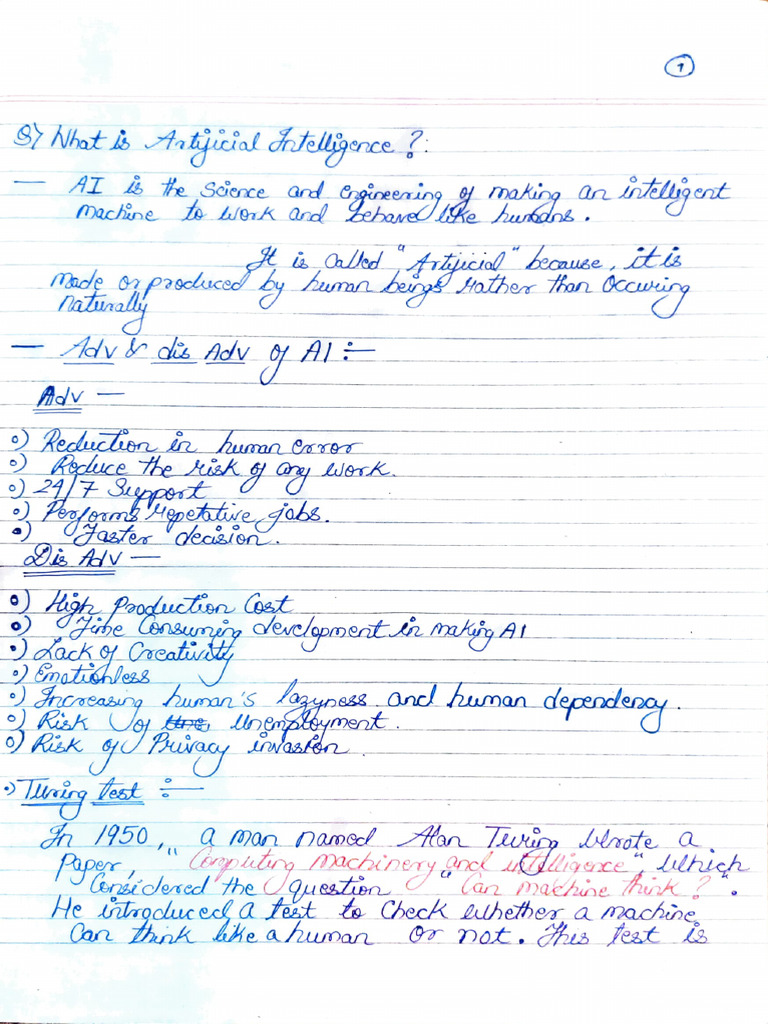 1
Q) What is Artificial Intelligence ? :
— AI is the science and engineering of making an intelligent
machine to work and behave like humans.
It is called "Artificial" because, it is
made or produced by human beings rather than occuring
naturally
— Adv & dis Adv of AI :—
Adv —
o) Reduction in human error
o) Reduce the risk of any work.
o) 24/7 Support
o) Performs repetative jobs.
o) Faster decision.
Dis Adv —
o) High Production Cost
o) Time Consuming development in making AI
o) Lack of Creativity
o) Emotionless
o) Increasing human's lazyness and human dependency.
o) Risk of the Unemployment.
o) Risk of Privacy invasion.
•) Turing test :—
In 1950, a man named Alan Turing wrote a
paper, "Computing machinery and intelligence", which
Considered the question "Can machine think ?".
He introduced a test to check whether a machine
Can think like a human or not. This test is